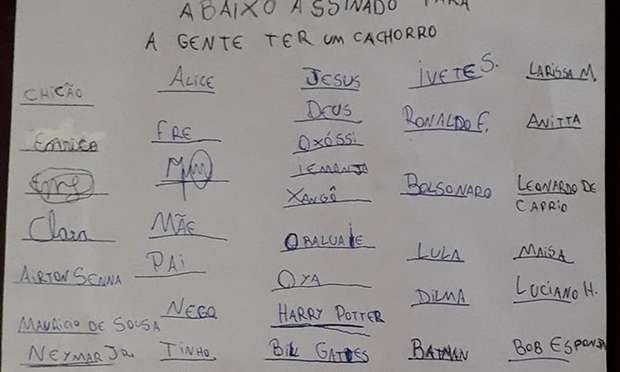 ABAIXO ASSINADO PARA
A GENTE TER UM CACHORRO
CHICÃO
ENRICO
Clara
AIRTON SENNA
MAURICIO DE SOUSA
NEYMAR JR.
ALICE
FRE
MÃE
PAI
NEGO
TINHO
JESUS
DEUS
OXÓSSI
IEMANJA
XANGÔ
OBALUAIE
OYA
HARRY POTTER
BILL GATES
IVETE S.
RONALDO F.
BOLSONARO
LULA
DILMA
BATMAN
LARISSA M.
ANITTA
LEONARDO DE
CAPRIO
MAISA
LUCIANO H.
BOB ESPONJA